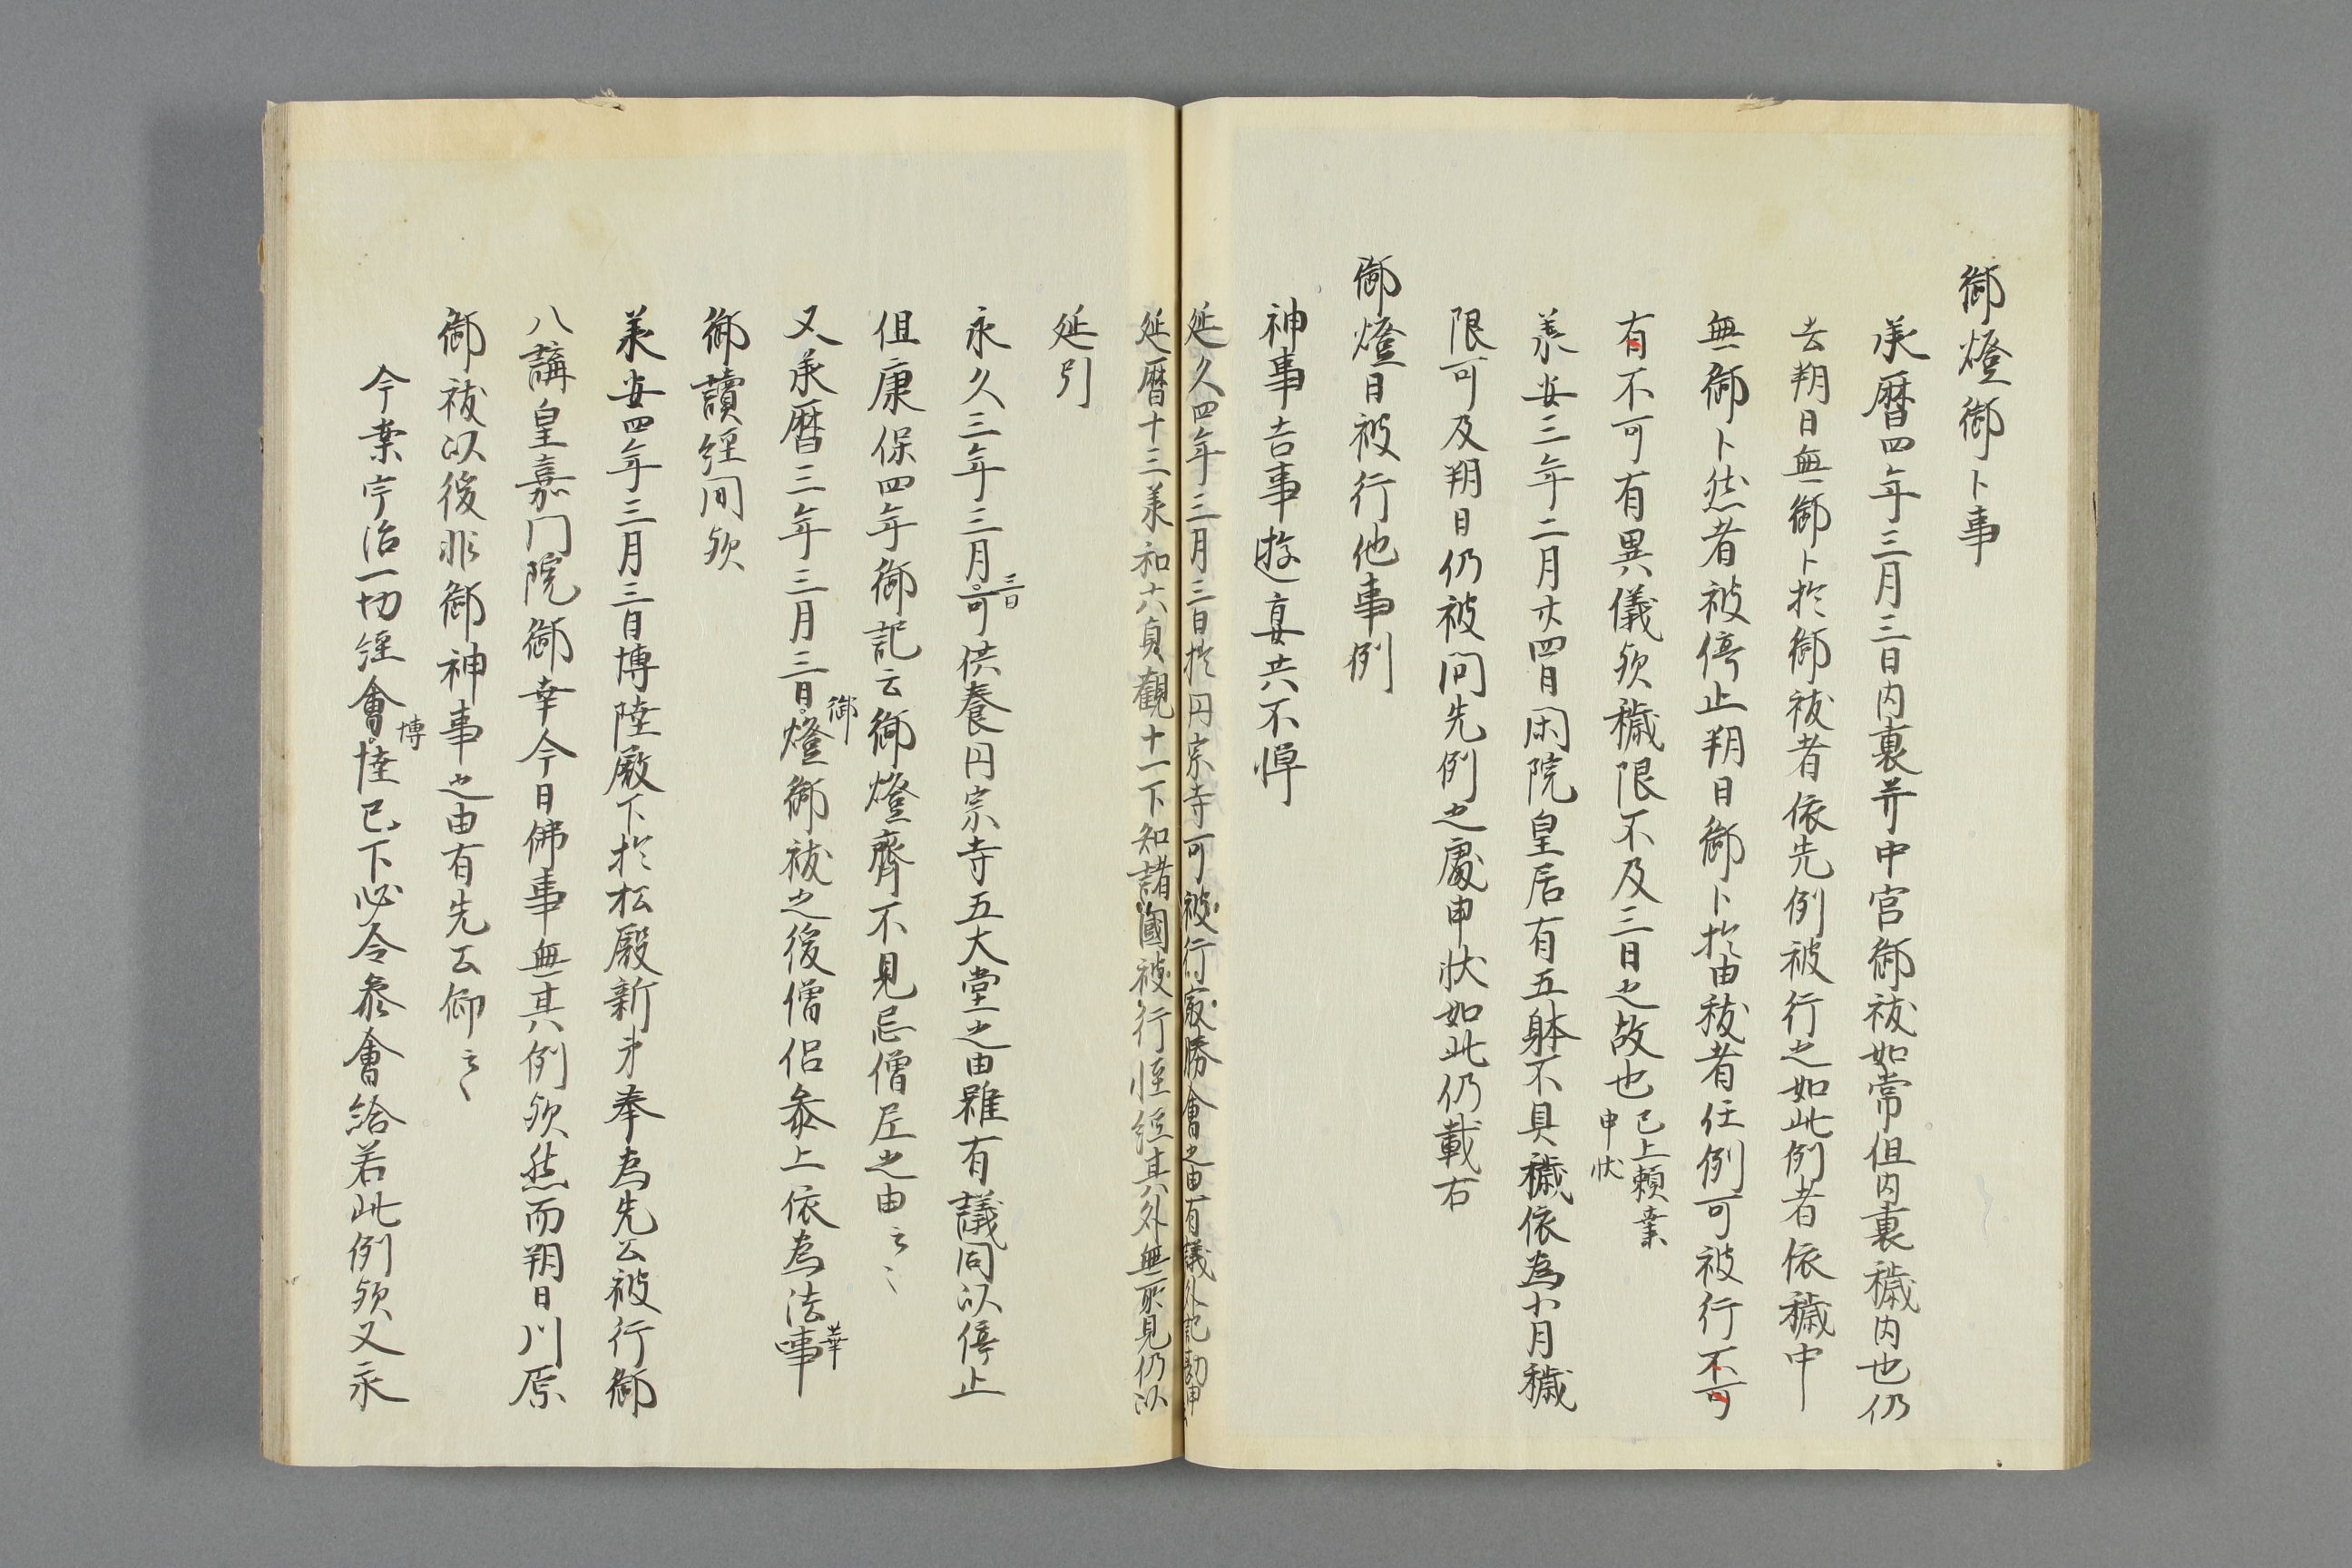 御燈御卜事
承暦四年三月三日内裏并中宮御祓如常但内裏穢内也仍
去朔日無御卜於御祓者依先例被行之如此例者依穢中
無御卜然者被停止朔日御卜於由祓者任例可被行不可
有不可有異儀欤穢限不及三日之故也已上頼業申状
承安三年二月廿四日閑院皇居有五躰不具穢依為七ケ日穢
限可及朔日仍被問先例之處申状如此仍載右
御燈日被行他事例
神事吉事遊宴共不憚
延久四年三月三日於円宗寺可被行寂勝會之由有議外記勘申
延暦十三承和六貞觀十一下知諸國被行恠經其外無所見仍以
延引
永久三年三月三日可供養円宗寺五大堂之由雖有議同以停止
但康保四年御記云御燈齊不見忌僧尼之由云々
又承暦三年三月三日御燈御祓之後僧侶参上依為法華事
御讀經间欤
承安四年三月三日博陸殿下於松殿新亭奉為先公被行御
八講皇嘉门院御幸今日佛事無其例欤然而朔日川原
御祓以後非御神事之由有先公仰云々
今案宇治一切經會博陸已下必令参會給若此例欤又永